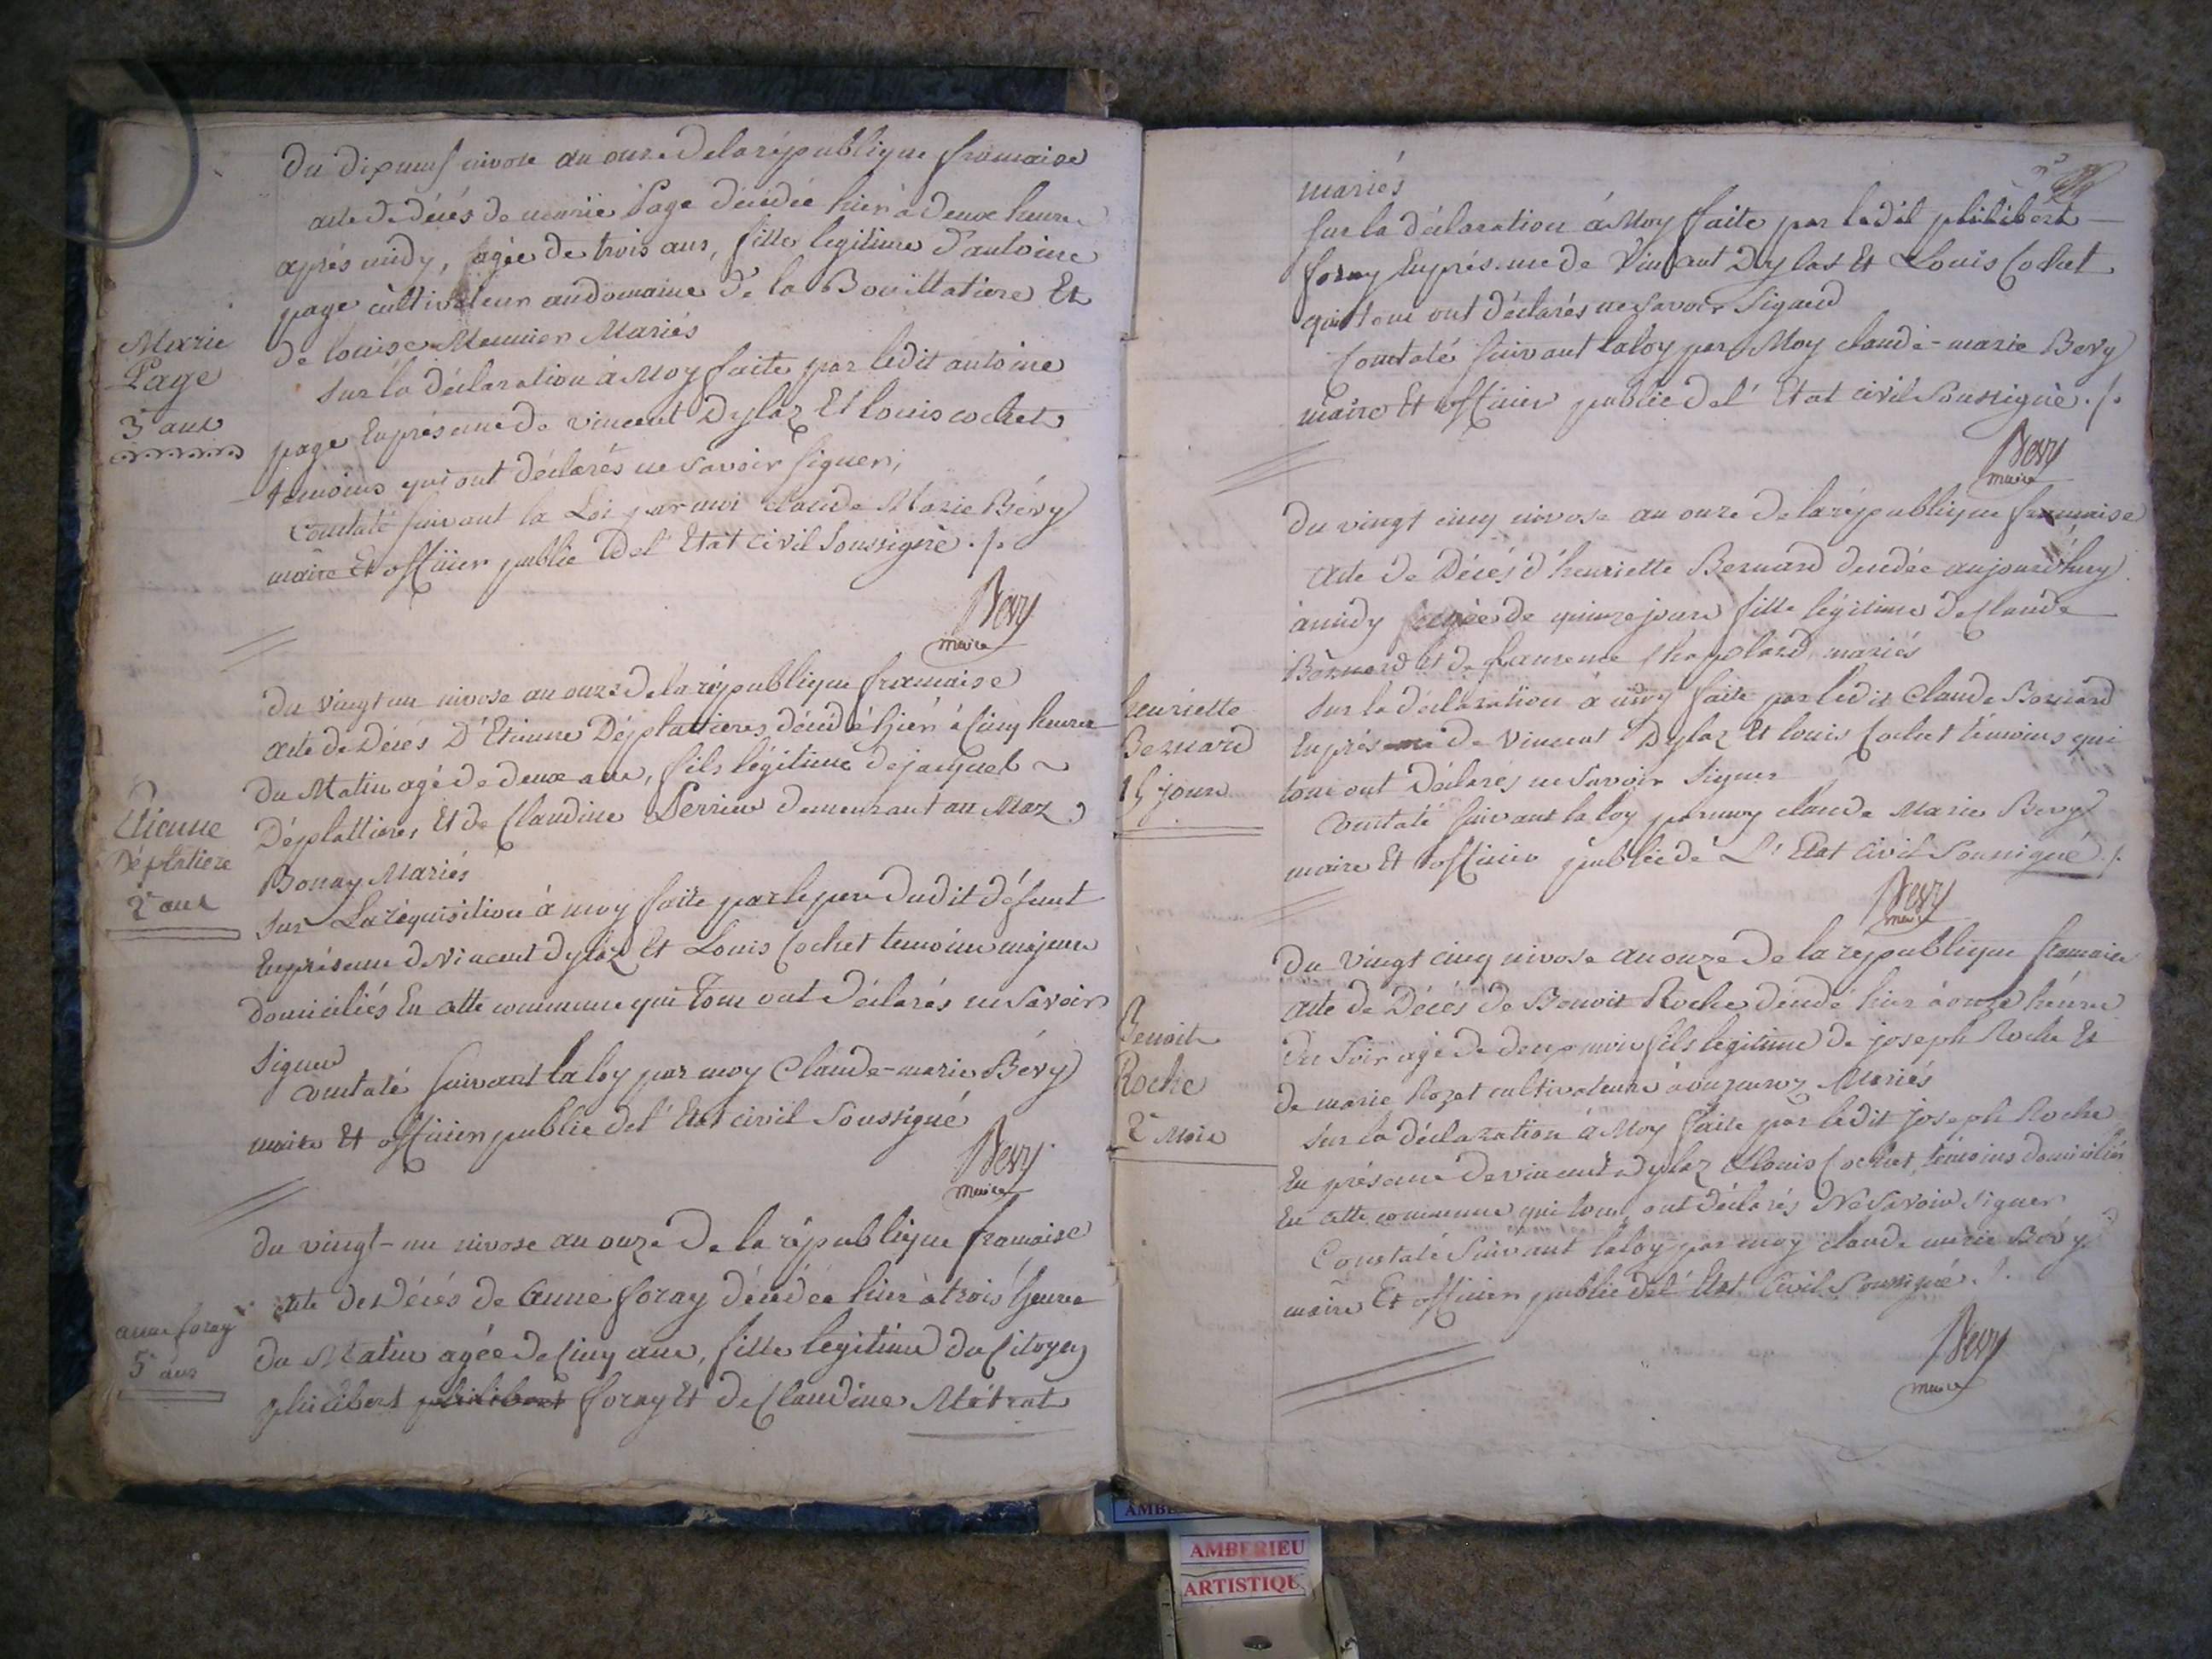 Du dix neuf nivose an onze de la république française
acte de décés de marie Page décédée hier à deux heures
aprés midy, agée de trois ans, fille legitime d'antoine
page cultivateur au domaine de la Bouillatiere Et
de louise Meunier Mariés
Marie
Page
3 ans
sur la déclaration à Moy faite par ledit antoine
page En présence de vincent Dylaz Et louis cochet
temoins qui ont déclarés ne savoir signer,
Constaté suivant la Loi par moi claude Marie Bévy
maire Et officier public de l'Etat civil soussigné ./.
Bevy
maire
Du vingt un nivose an onze de la république française
acte de Décés D'Etienne Déplattieres décédé hier à cinq heures
du Matin agé de deux ans, fils légitime de jacquet
Déplattieres Et de Claudine Perrin demeurant au Maz
Bonay Mariés
Etienne
Déplatiere
2 ans
sur La réquisition à moy faite par le pere dudit défunt
En présence de Vincent Dylaz Et Louis Cochet temoins majeurs
domiciliés En cette commune qui Tous ont déclarés ne savoir
signer
Constaté suivant la loy par moy Claude-marie Bévy
maire Et officier public de l'Etat civil soussigné
Bevy
maire
du vingt-un nivose an onze De la république française
acte de Décés de Anne foray décédée hier à trois heures
du Matin agée de cinq ans, fille legitime du Citoyen
philibert philibert foray Et de Claudine Métrat
anne foray
5 ans
mariés
sur la déclaration à Moy faite par ledit philibert
foray En présence de Vincent Dylas Et Louis Cochet
qui tous ont déclarés ne savoir signer
Constaté suivant la loy par Moy claude-marie Bevy
maire Et officier public de l'Etat civil soussigné ./.
Bevy
maire
Du vingt cinq nivose an onze de la république française
Acte de Décés d'henriette Bernard décédée aujourd'huy
à midy agée de quinze jours fille légitime de Claude
Bernard Et de Laurence Chapolard mariés
henriette
Bernard
15 jours
sur la déclaration à moy faite par ledit Claude Bernard
En présence de Vincent Dylaz Et louis Cochet témoins qui
tous ont déclarés ne savoir signer
Constaté suivant la loy par moy claude Marie Bevy
maire Et officier public de L'Etat civil soussigné ./.
Bevy
maire
Du vingt cinq nivose an onze De la république française
acte de Décés de Benoit Roche décédé hier à onze heures
du soir agé de deux mois fils legitime de joseph Roche Et
de marie Rozet cultivateurs Mariés
Benoit
Roche
2 Mois
sur la déclaration à Moy faite par ledit joseph Roche
En présence de vincent dylaz Et louis Cochet, témoins domiciliés
En cette commune qui tous ont déclarés Ne savoir signer
Constaté suivant la loy par moy claude marie Bévy
maire Et officier public de l'Etat Civil soussigné ./.
Bevy
maire
AMBERIEU
ARTISTIQU